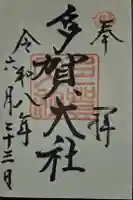 奉拝
多賀大社
令和八年
六月二十三日